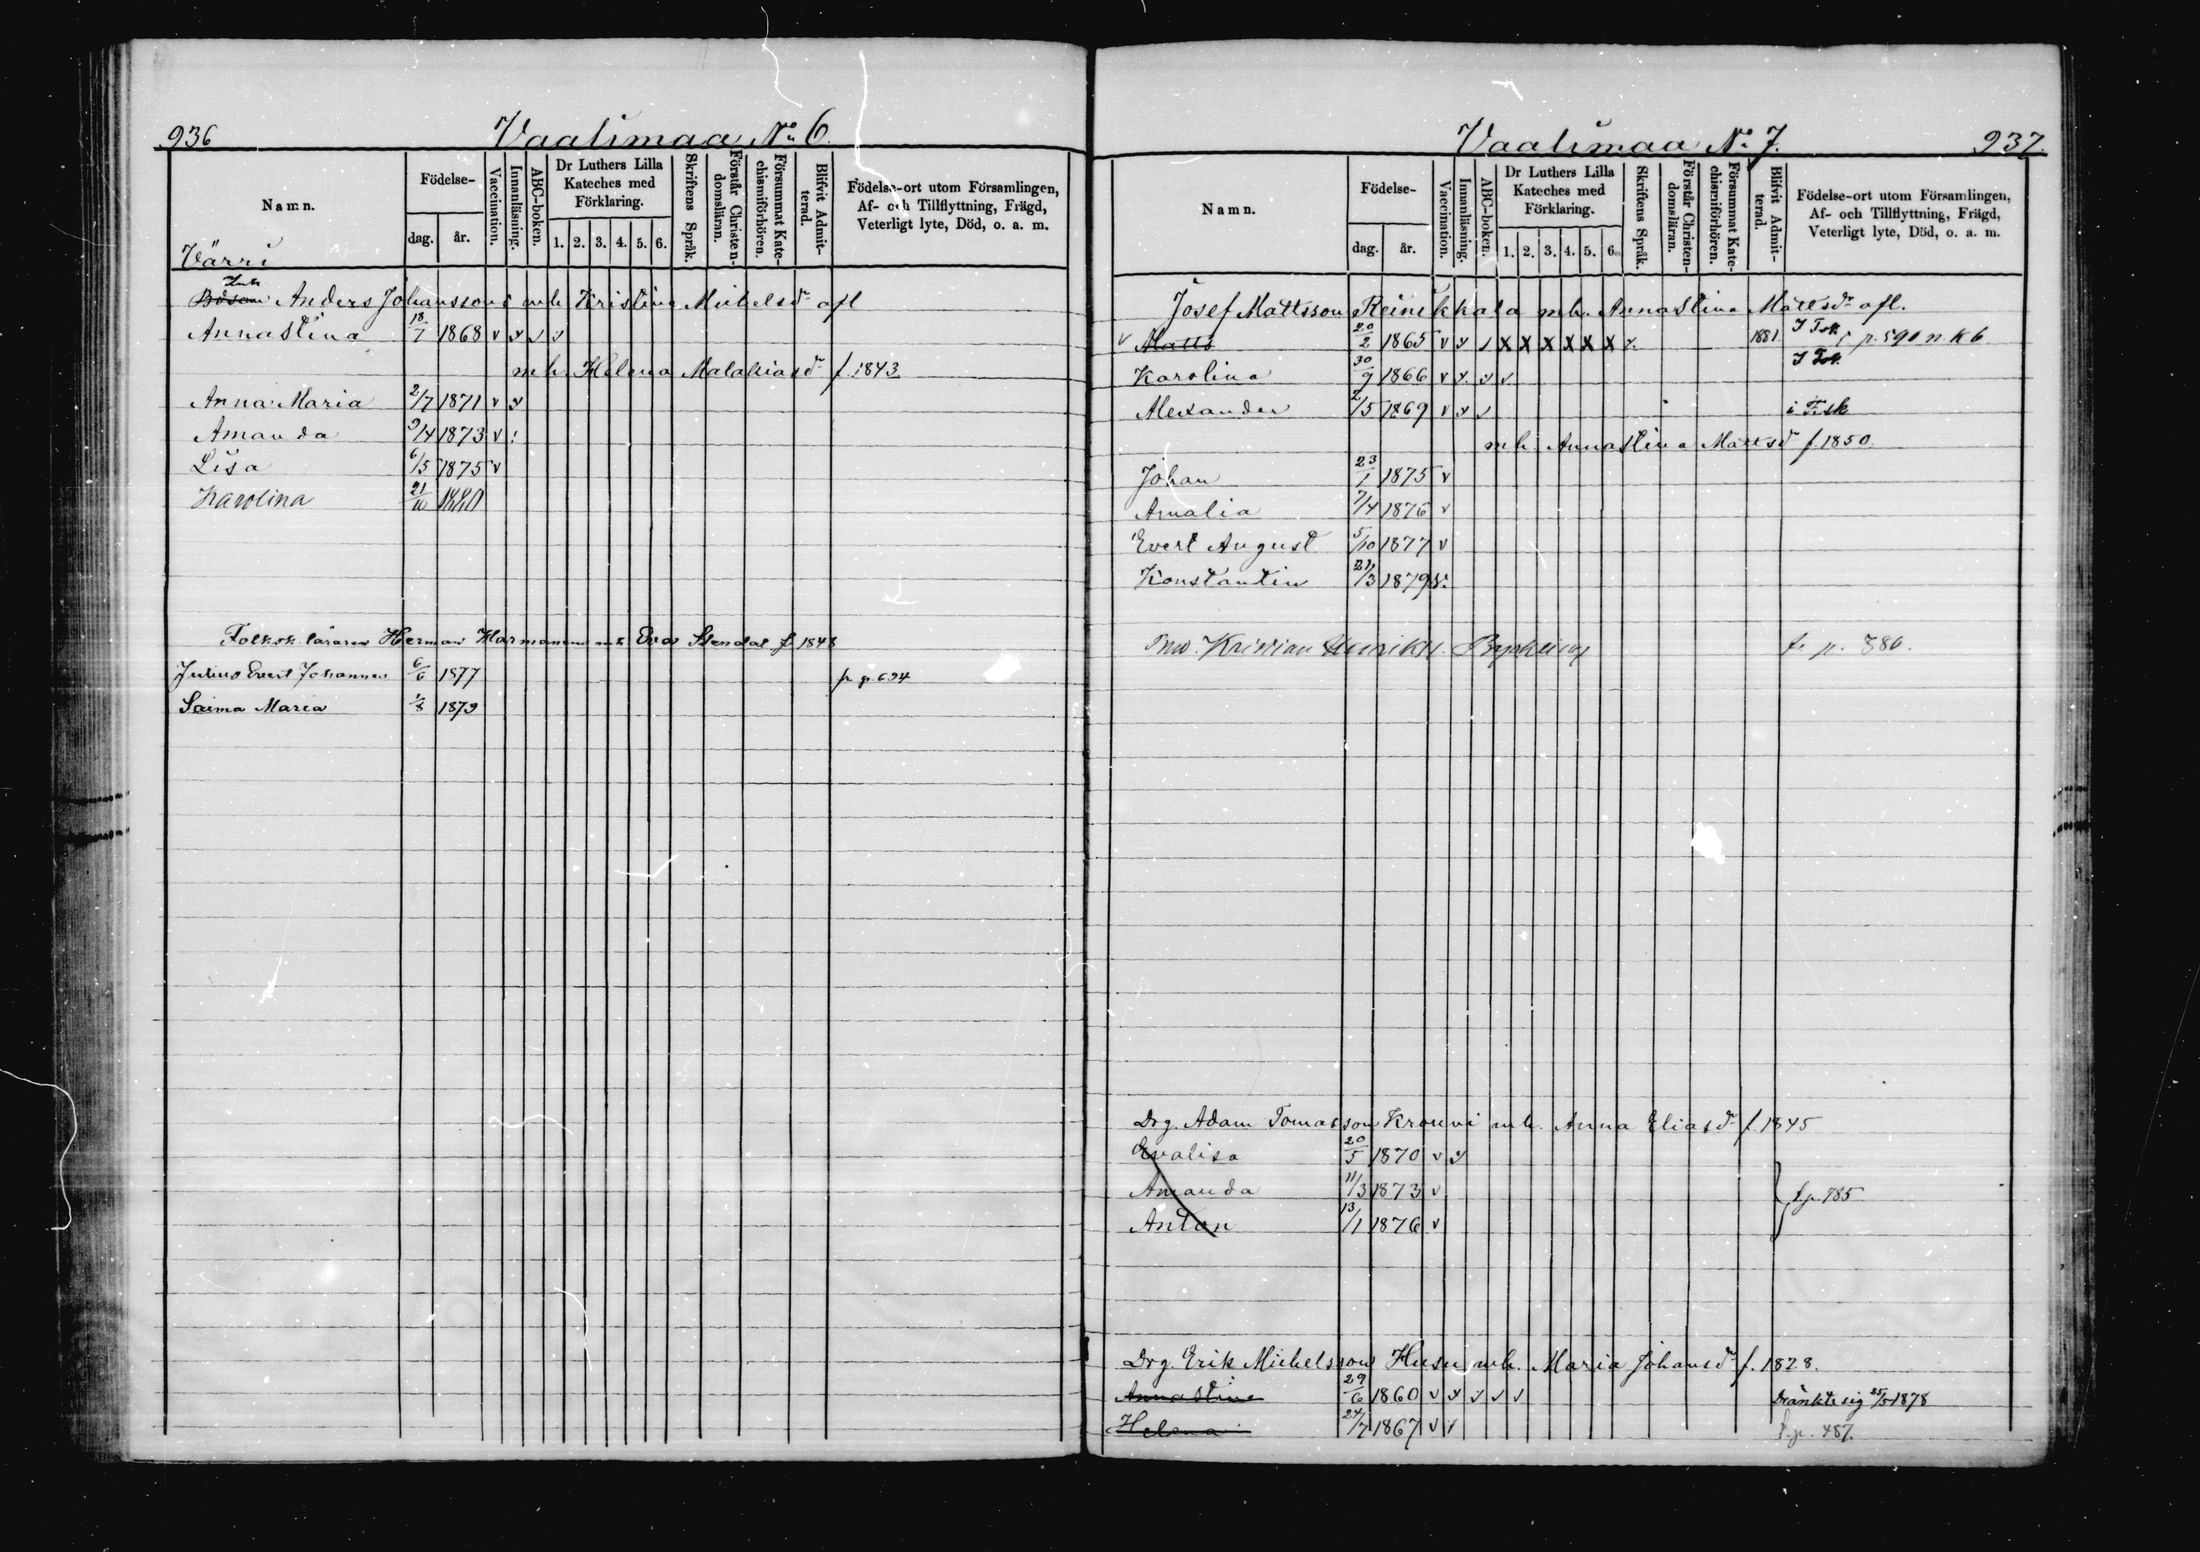 936
Vaalimaa No 6.
Namn.
Födelse-
dag.
år.
Vaccination.
Innanläsning.
ABC-boken.
Dr Luthers Lilla
Kateches med
Förklaring.
1. 2. 3. 4. 5. 6.
Skriftens Språk.
Förstår Christen-
domsläran.
Försummat Kate-
chismiförhören.
Blifvit Admit-
terad.
Födelse-ort utom Församlingen,
Af- och Tillflyttning, Frägd,
Veterligt lyte, Död, o. a. m.
Värri
Anders Johanssons mh Kristina Michelsdr afl
Annastina 18/7 1868 v v v v
mh. Helena Malakiasdr f. 1843.
Anna Maria 2/7 1871 v v
Amanda 9/4 1873 v :
Lisa 6/5 1875 v
Karolina 21/10 1880
Folksk. läraren Herman mh Eva Stendal f. 1848
Julius Evert Johannes 6/6 1877 fr p. 694
Saima Maria 1/8 1879
Vaalimaa No 7.
937.
Namn.
Födelse-
dag.
år.
Vaccination.
Innanläsning.
ABC-boken.
Dr Luthers Lilla
Kateches med
Förklaring.
1. 2. 3. 4. 5. 6.
Skriftens Språk.
Förstår Christen-
domsläran.
Försummat Kate-
chismiförhören.
Blifvit Admit-
terad.
Födelse-ort utom Församlingen,
Af- och Tillflyttning, Frägd,
Veterligt lyte, Död, o. a. m.
Josef Mattsson Reinikkala mh. Annastina Mattsdr afl.
v Matts 20/2 1865 v v v x x x x x x x. 1881. I Fsk. p. 590 n. K b.
Karolina 30/9 1866 v v v v I Fsk.
Alexander 2/5 1869 v v v i Fsk
mh. Annastina Mattsdr f. 1850.
Johan 23/1 1875 v
Amalia 7/4 1876 v
Evert August 5/10 1877 v
Konstantin 21/3 1879 v.
Kristian fr p. 386.
Drg. Adam Tomasson Krouvi mh. Anna Eliasdr f. 1845
Evalisa 20/5 1870 v v
Amanda 11/3 1873 v f. p. 785
Anton 13/1 1876 v
Drg. Erik Michelsson Husu mh. Maria Johansdr f. 1828.
Annastina 29/6 1860 v v v v v Dränkte sig 25/5 1878
Helena 24/7 1867 v v f. p. 487.